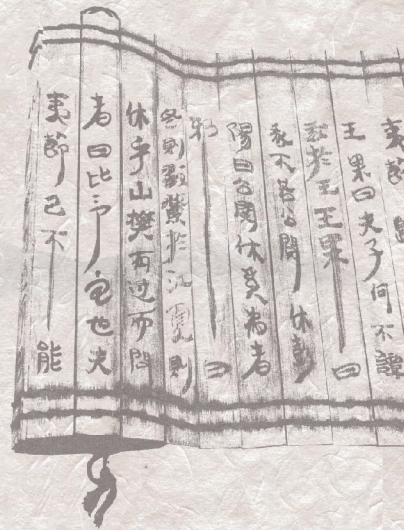 夷節歸
王果曰夫子何不譚
我於王王果曰
我不若公閱休彭
陽曰公閱休奚為者
邪曰
冬則擉鱉於江夏則
休乎山樊有过而問
者曰此予宅也夫
夷節已不能